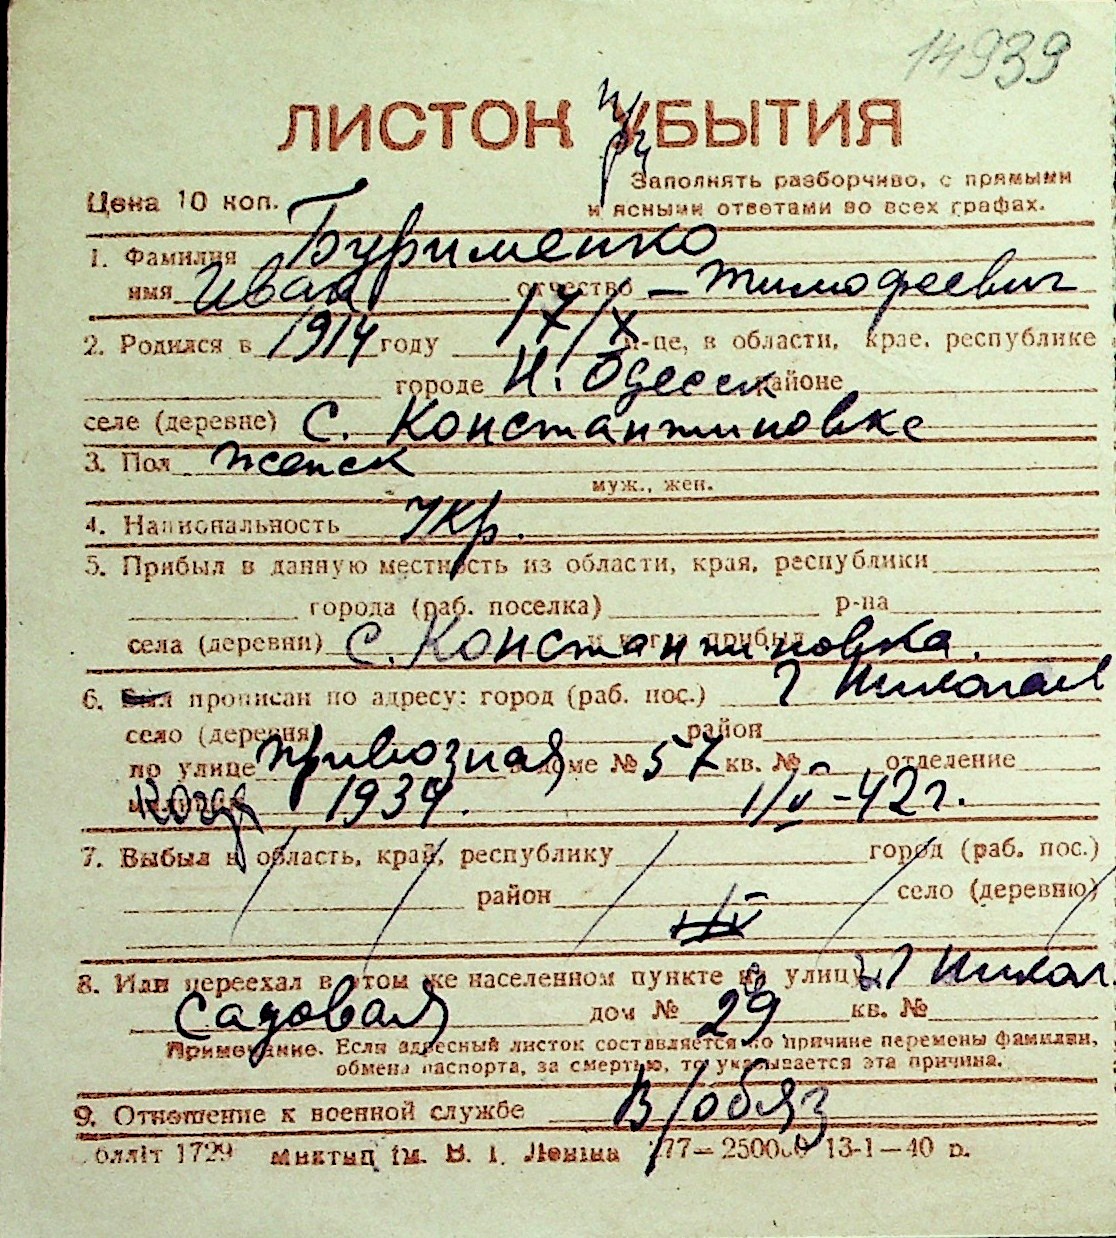 14939
ЛИСТОК УБЫТИЯ
Заполнять разборчиво, с прямыми
Цена 10 коп.
и ясными ответами во всех графах.
1. Фамилия Буришенко
имя Иван отчество – Тимофеевич
2. Родился в 1914 году 17/X м-це, в области, крае, республике
городе Н. Одесск районе
селе (деревне) С. Константиновке
3. Пол женск
муж., жен.
4. Национальность Укр.
5. Прибыл в данную местность из области, края, республики
города (раб. поселка) р-на
села (деревни) С. Константиновка. и когда прибыл
6. Был прописан по адресу: город (раб. пос.) г Николаев
село (деревня) район
по улице Привозная в доме № 57 кв. № отделение
милиции когда 1939. 1/V-42 г.
7. Выбыл в область, край, республику город (раб. пос.)
район село (деревню)
8. Или переехал в этом же населенном пункте на улицу г Никол.
Садовая дом № 29 кв. №
Примечание. Если адресный листок составляется по причине перемены фамилии,
обмена паспорта, за смертью, то указывается эта причина.
9. Отношение к военной службе В/обяз
1729 ім. В. І. Леніна 13-1—40 р.